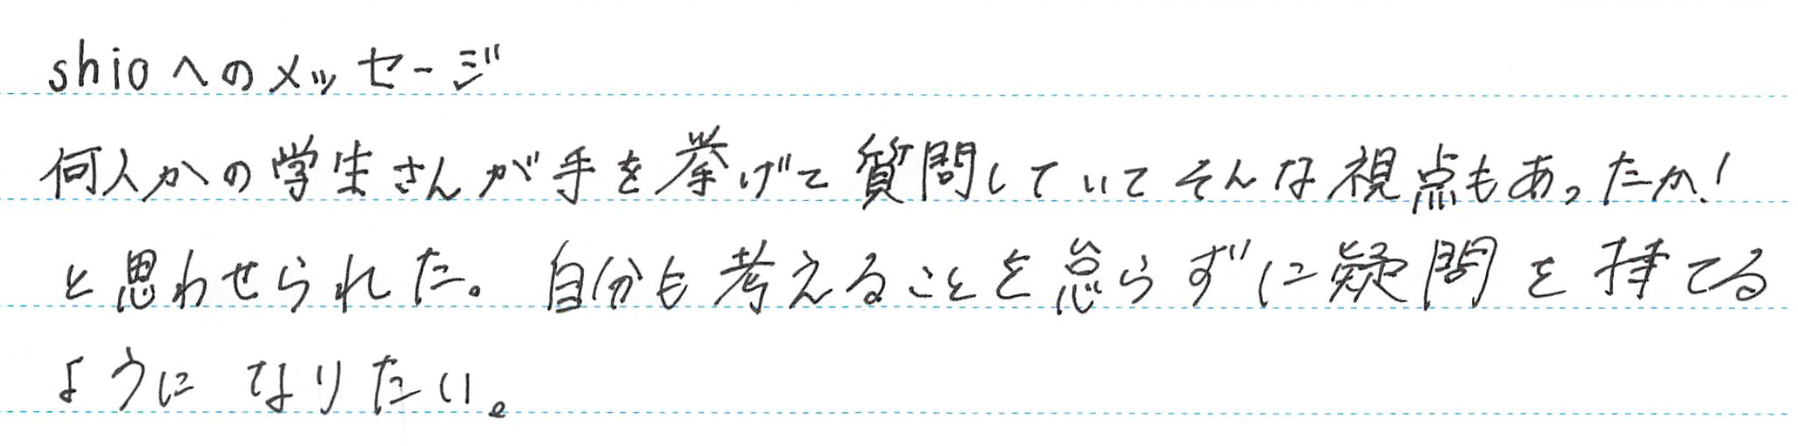 shioへのメッセージ
何人かの学生さんが手を挙げて質問していてそんな視点もあったか!
と思わせられた。自分も考えることを怠らずに疑問を持てる
ようになりたい。